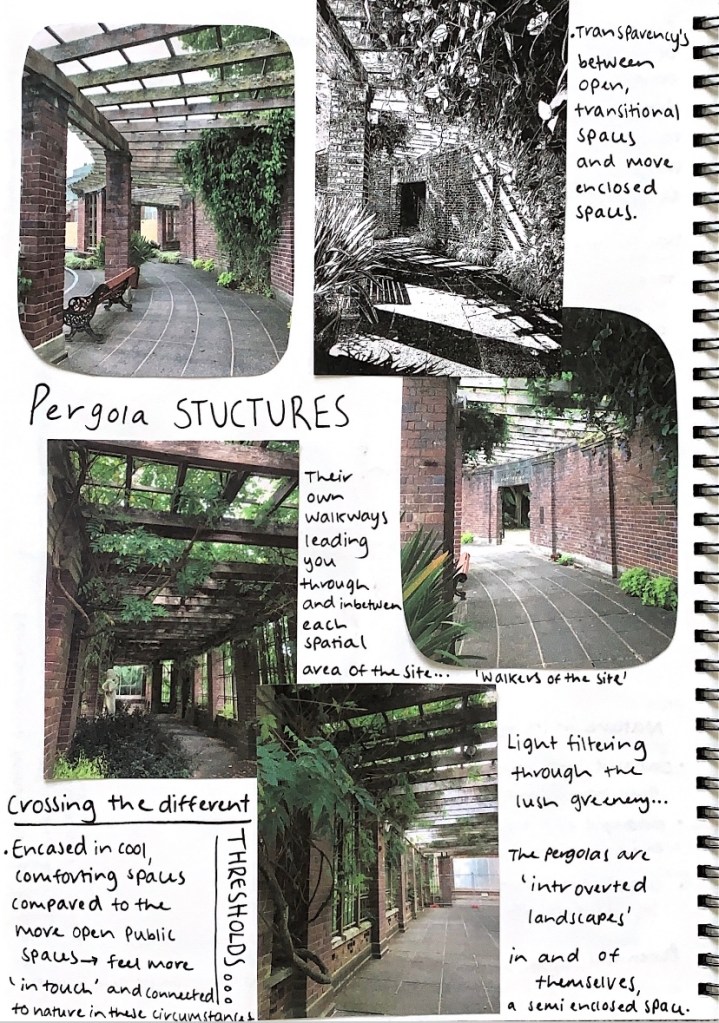 . Transparency's
between
open,
transitional
spaces
and more
enclosed
spaces.
Pergola STUCTURES
Their
own
walkways
leading
you
through
and inbetween
each
spatial
area of the site...
'Walkers of the site'
Light filtering
through the
lush greenery...
The pergolas are
'introverted
landscapes'
in and of
themselves,
a semi enclosed space.
Crossing the different
THRESHOLDS...
. Encased in cool,
comforting spaces
compared to the
more open public
spaces → feel more
'in touch' and connected
to nature in these circumstances